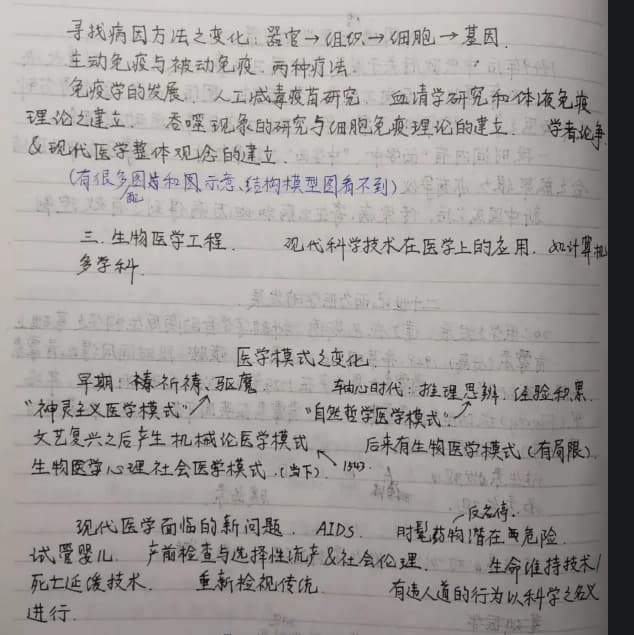 寻找病因方法之变化：器官→组织→细胞→基因.
主动免疫与被动免疫.两种疗法.
免疫学的发展.人工减毒疫苗研究. 血清学研究和体液免疫
理论之建立. 吞噬现象的研究与细胞免疫理论的建立. 学者论争
&现代医学整体观念的建立.
(有很多配图片和图示意、结构模型图看不到)
三.生物医学工程. 现代科学技术在医学上的应用.如计算机
多学科.
医学模式之变化.
早期：祷祈祷、驱魔 轴心时代：推理思辨、经验积累.
"神灵主义医学模式" "自然哲学医学模式"
文艺复兴之后产生机械论医学模式 后来有生物医学模式(有局限).
生物医学心理社会医学模式.(当下). 1543.
反应停.
现代医学面临的新问题. AIDS. 时髦药物潜在危险.
试管婴儿. 产前检查与选择性流产&社会伦理. 生命维持技术/
死亡延缓技术. 重新检视传统. 有违人道的行为以科学之名义
进行.